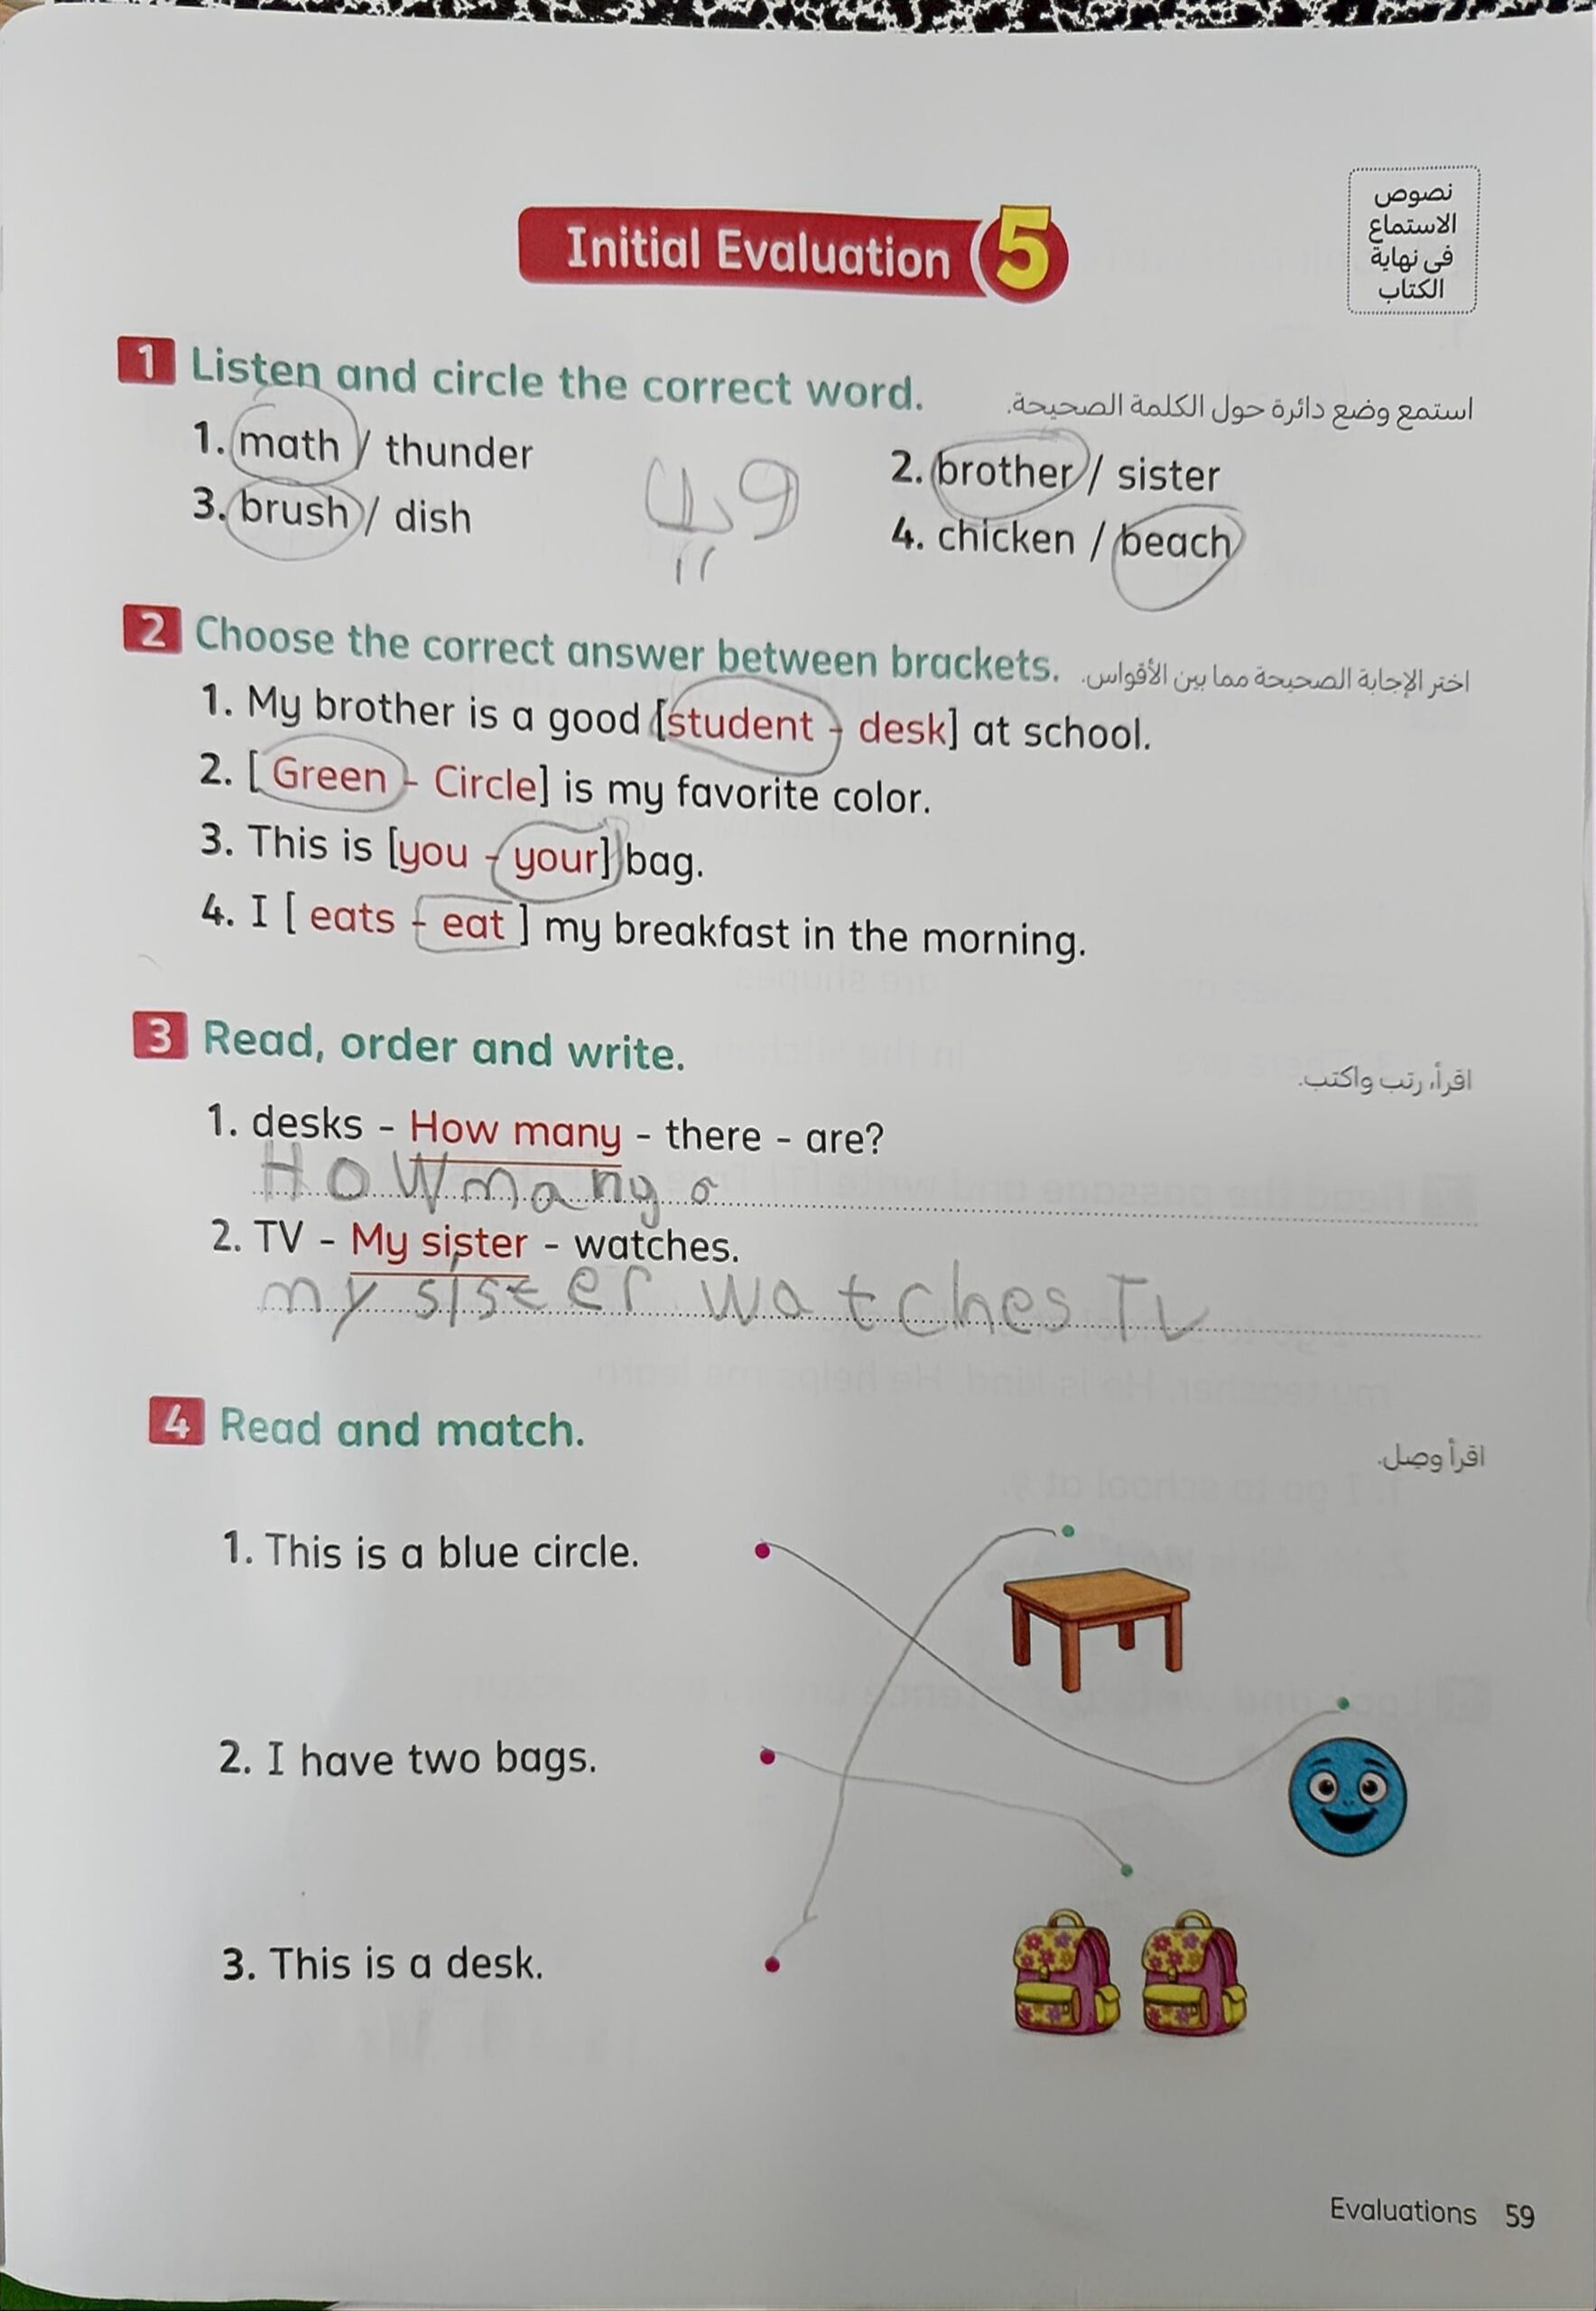 نصوص
الاستماع
فى نهاية
الكتاب
Initial Evaluation 5
1 Listen and circle the correct word.
استمع وضع دائرة حول الكلمة الصحيحة.
1. math / thunder
2. brother / sister
3. brush / dish
4. chicken / beach
2 Choose the correct answer between brackets.
اختر الإجابة الصحيحة مما بين الأقواس.
1. My brother is a good [student - desk] at school.
2. [ Green - Circle] is my favorite color.
3. This is [you - your] bag.
4. I [ eats - eat ] my breakfast in the morning.
3 Read, order and write.
اقرأ، رتب واكتب.
1. desks - How many - there - are?
How many
2. TV - My sister - watches.
my sister watches TV
4 Read and match.
اقرأ وصل.
1. This is a blue circle.
2. I have two bags.
3. This is a desk.
Evaluations 59